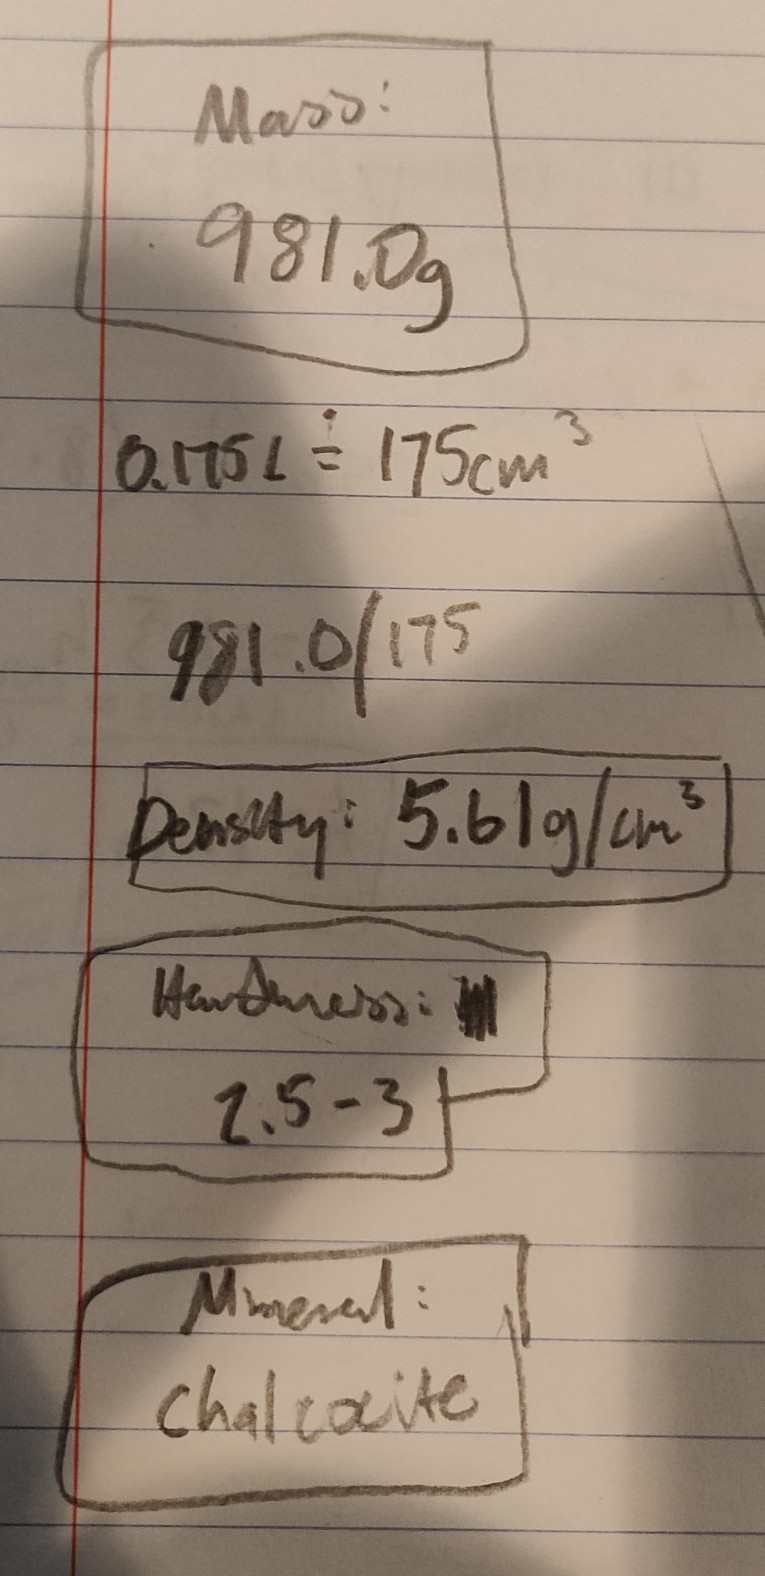 Mass:
981.0g
0.175L = 175cm³
981.0/175
Density: 5.61g/cm³
Hardness:
2.5-3
Mineral:
Chalcocite